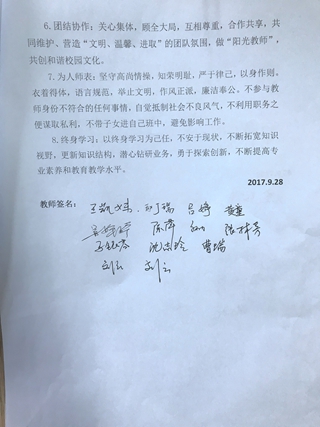 6.团结协作：关心集体，顾全大局，互相尊重，合作共享，共
同维护、营造“文明、温馨、进取”的团队氛围，做“阳光教师”，
共创和谐校园文化。
7.为人师表：坚守高尚情操，知荣明耻，严于律己，以身作则、
衣着得体，语言规范，举止文明，作风正派，廉洁奉公。不参与教
师身份不符合的任何事情，自觉抵制社会不良风气，不利用职务之
便谋取私利，不带子女进自己班中，避免影响工作。
8.终身学习：以终身学习为己任，不安于现状，不断拓宽知识
视野，更新知识结构，潜心钻研业务，勇于探索创新，不断提高专
业素养和教育教学水平。
2017.9.28
教师签名： 吕婷
陈萍
曹瑞
刘云